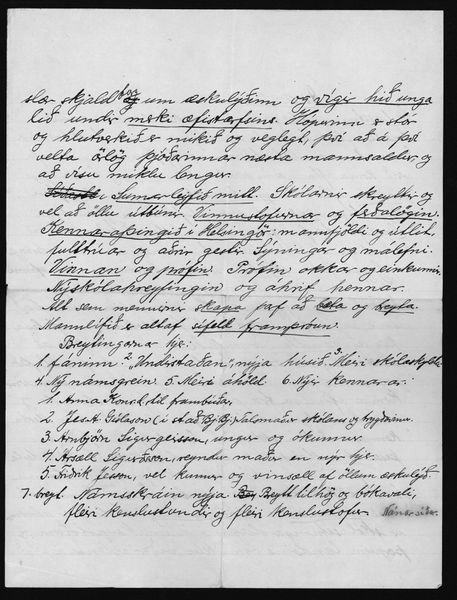 slær skjaldborg um æskulýðinn og vígir hið unga
lið undir merki æfistarfsins. Hópurinn er stór
og hlutverkið er mikið og veglegt, því að á því
velta örlög þjóðarinnar næsta mannsaldur og
að vísu miklu lengur.
Sumarleyfið mitt. Skólarnir skreyttir og
vel að öllu útbúnir. Vinnustofurnar og
Kennaraþingið í Helsingör: mannfjöldi og útlit.
fulltrúar og aðrir gestir. Sýningar og málefni.
Vinnan og prófin. Prófin okkar og einkunnir.
Nýskólahreyfingin og áhrif hennar.
Alt sem mennirnir skapa þarf að bæta og breyta.
Mannlífið er altaf sífeld framþróun.
Breytingarnar hjer:
1. fáninn 2. "Undirstaðan", nýja húsið. 3. Meiri skólaskylda
4. Ný námsgrein. 5. Meiri áhöld 6. Nýir kennarar:
1. Anna Konráðs. til frambúðar.
2. Jes. A. Gíslason (í stað Bj. Bj.) Talsmaður skólans og
3. Arnbjörn Sigurgeirsson, ungur og ókunnur.
4. Ársæll Sigurðsson, reyndur maður en nýr hjer.
5. Friðrik Jesson, vel kunnur og vinsæll af öllum æskulýð.
7. breyt. Námsskráin nýja Breytt tilhög. og bókavali,
fleiri kenslustundir og fleiri kenslustofur. Nánar síðar.